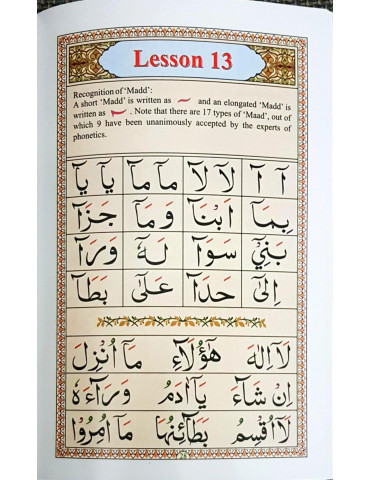 Lesson 13
Recognition of 'Madd':
A short 'Madd' is written as and an elongated 'Madd' is
written as . Note that there are 17 types of 'Maad', out of
which 9 have been unanimously accepted by the experts of
phonetics.
آ آ لَآ لَآ مَآ مَآ يَآ يَآ
بِمَآ اَبْنَآ وَمَآ جَزَآ
بَنِيْٓ سَوَآ لَهٗٓ وَرَآ
اِلٰٓى حَدَآ عَلٰٓى بَطَآ
لَآ اِلٰهَ هٰٓؤُلَآءِ مَآ اُنْزِلَ
اِنْ شَآءَ يَآ اٰدَمُ وَرَآءَهٗ
لَآ اُقْسِمُ بَطَآئِنُهَا مَآ اُمِرُوْا